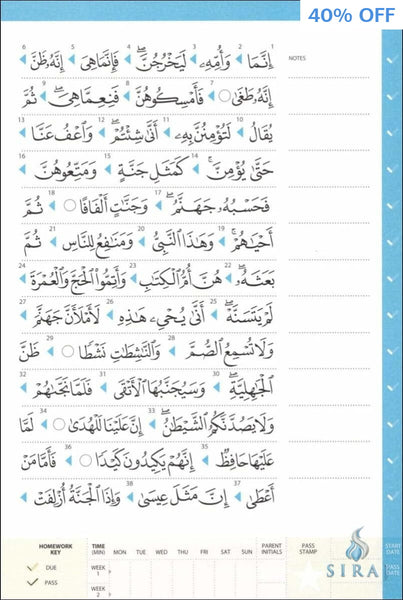 40% OFF
NOTES
1 إِنَّمَا 2 وَأُمِّهِۦ 3 لَيَخْرُجُنَّۖ 4 فَإِنَّمَا هِيَ 5 إِنَّهُۥ ظَنَّ 6
إِنَّهُۥ طَغَىٰ 7 فَأَمْسِكُوهُنَّ 8 فَنِعِمَّا هِيَۖ 9 ثُمَّ
يُقَالُ 10 لَتُؤْمِنُنَّ بِهِۦ 11 أَنَّىٰ شِئْتُمْۖ 12 وَٱعْفُ عَنَّا 13
حَتَّىٰ يُؤْمِنَّۚ 14 كَمَثَلِ جَنَّةٍ 15 وَمَتِّعُوهُنَّ 16
فَحَسْبُهُۥ جَهَنَّمُۖ 17 وَجَنَّٰتٍ أَلْفَافًا 18 ثُمَّ
أَحْيَٰهُمْۚ 19 وَهَٰذَا ٱلنَّبِيُّ 20 وَمَنَٰفِعُ لِلنَّاسِ 21 ثُمَّ
بَعَثَهُۥۖ 22 هُنَّ أُمُّ ٱلْكِتَٰبِ 23 وَأَتِمُّوا۟ ٱلْحَجَّ وَٱلْعُمْرَةَ 24
لَمْ يَتَسَنَّهْۖ 25 أَنَّىٰ يُحْىِۦ هَٰذِهِ 26 لَأَمْلَأَنَّ جَهَنَّمَ 27
وَلَا تُسْمِعُ ٱلصُّمَّ 28 وَٱلنَّٰشِطَٰتِ نَشْطًا 29 ظَنَّ
ٱلْجَٰهِلِيَّةِۖ 30 وَسَيُجَنَّبُهَا ٱلْأَتْقَى 31 فَلَمَّا نَجَّىٰهُمْ 32
وَلَا يَصُدَّنَّكُمُ ٱلشَّيْطَٰنُۖ 33 إِنَّ عَلَيْنَا لَلْهُدَىٰ 34 لَمَّا
عَلَيْهَا حَافِظٌ 35 إِنَّهُمْ يَكِيدُونَ كَيْدًا 36 فَأَمَّا مَنْ
أَعْطَىٰ 37 إِنَّ مَثَلَ عِيسَىٰ 38 وَإِذَا ٱلْجَنَّةُ أُزْلِفَتْ
HOMEWORK KEY TIME (MIN) MON TUE WED THU FRI SAT SUN PARENT INITIALS PASS STAMP START DATE
DUE WEEK 1 PASS DATE
PASS WEEK 2
SIRA